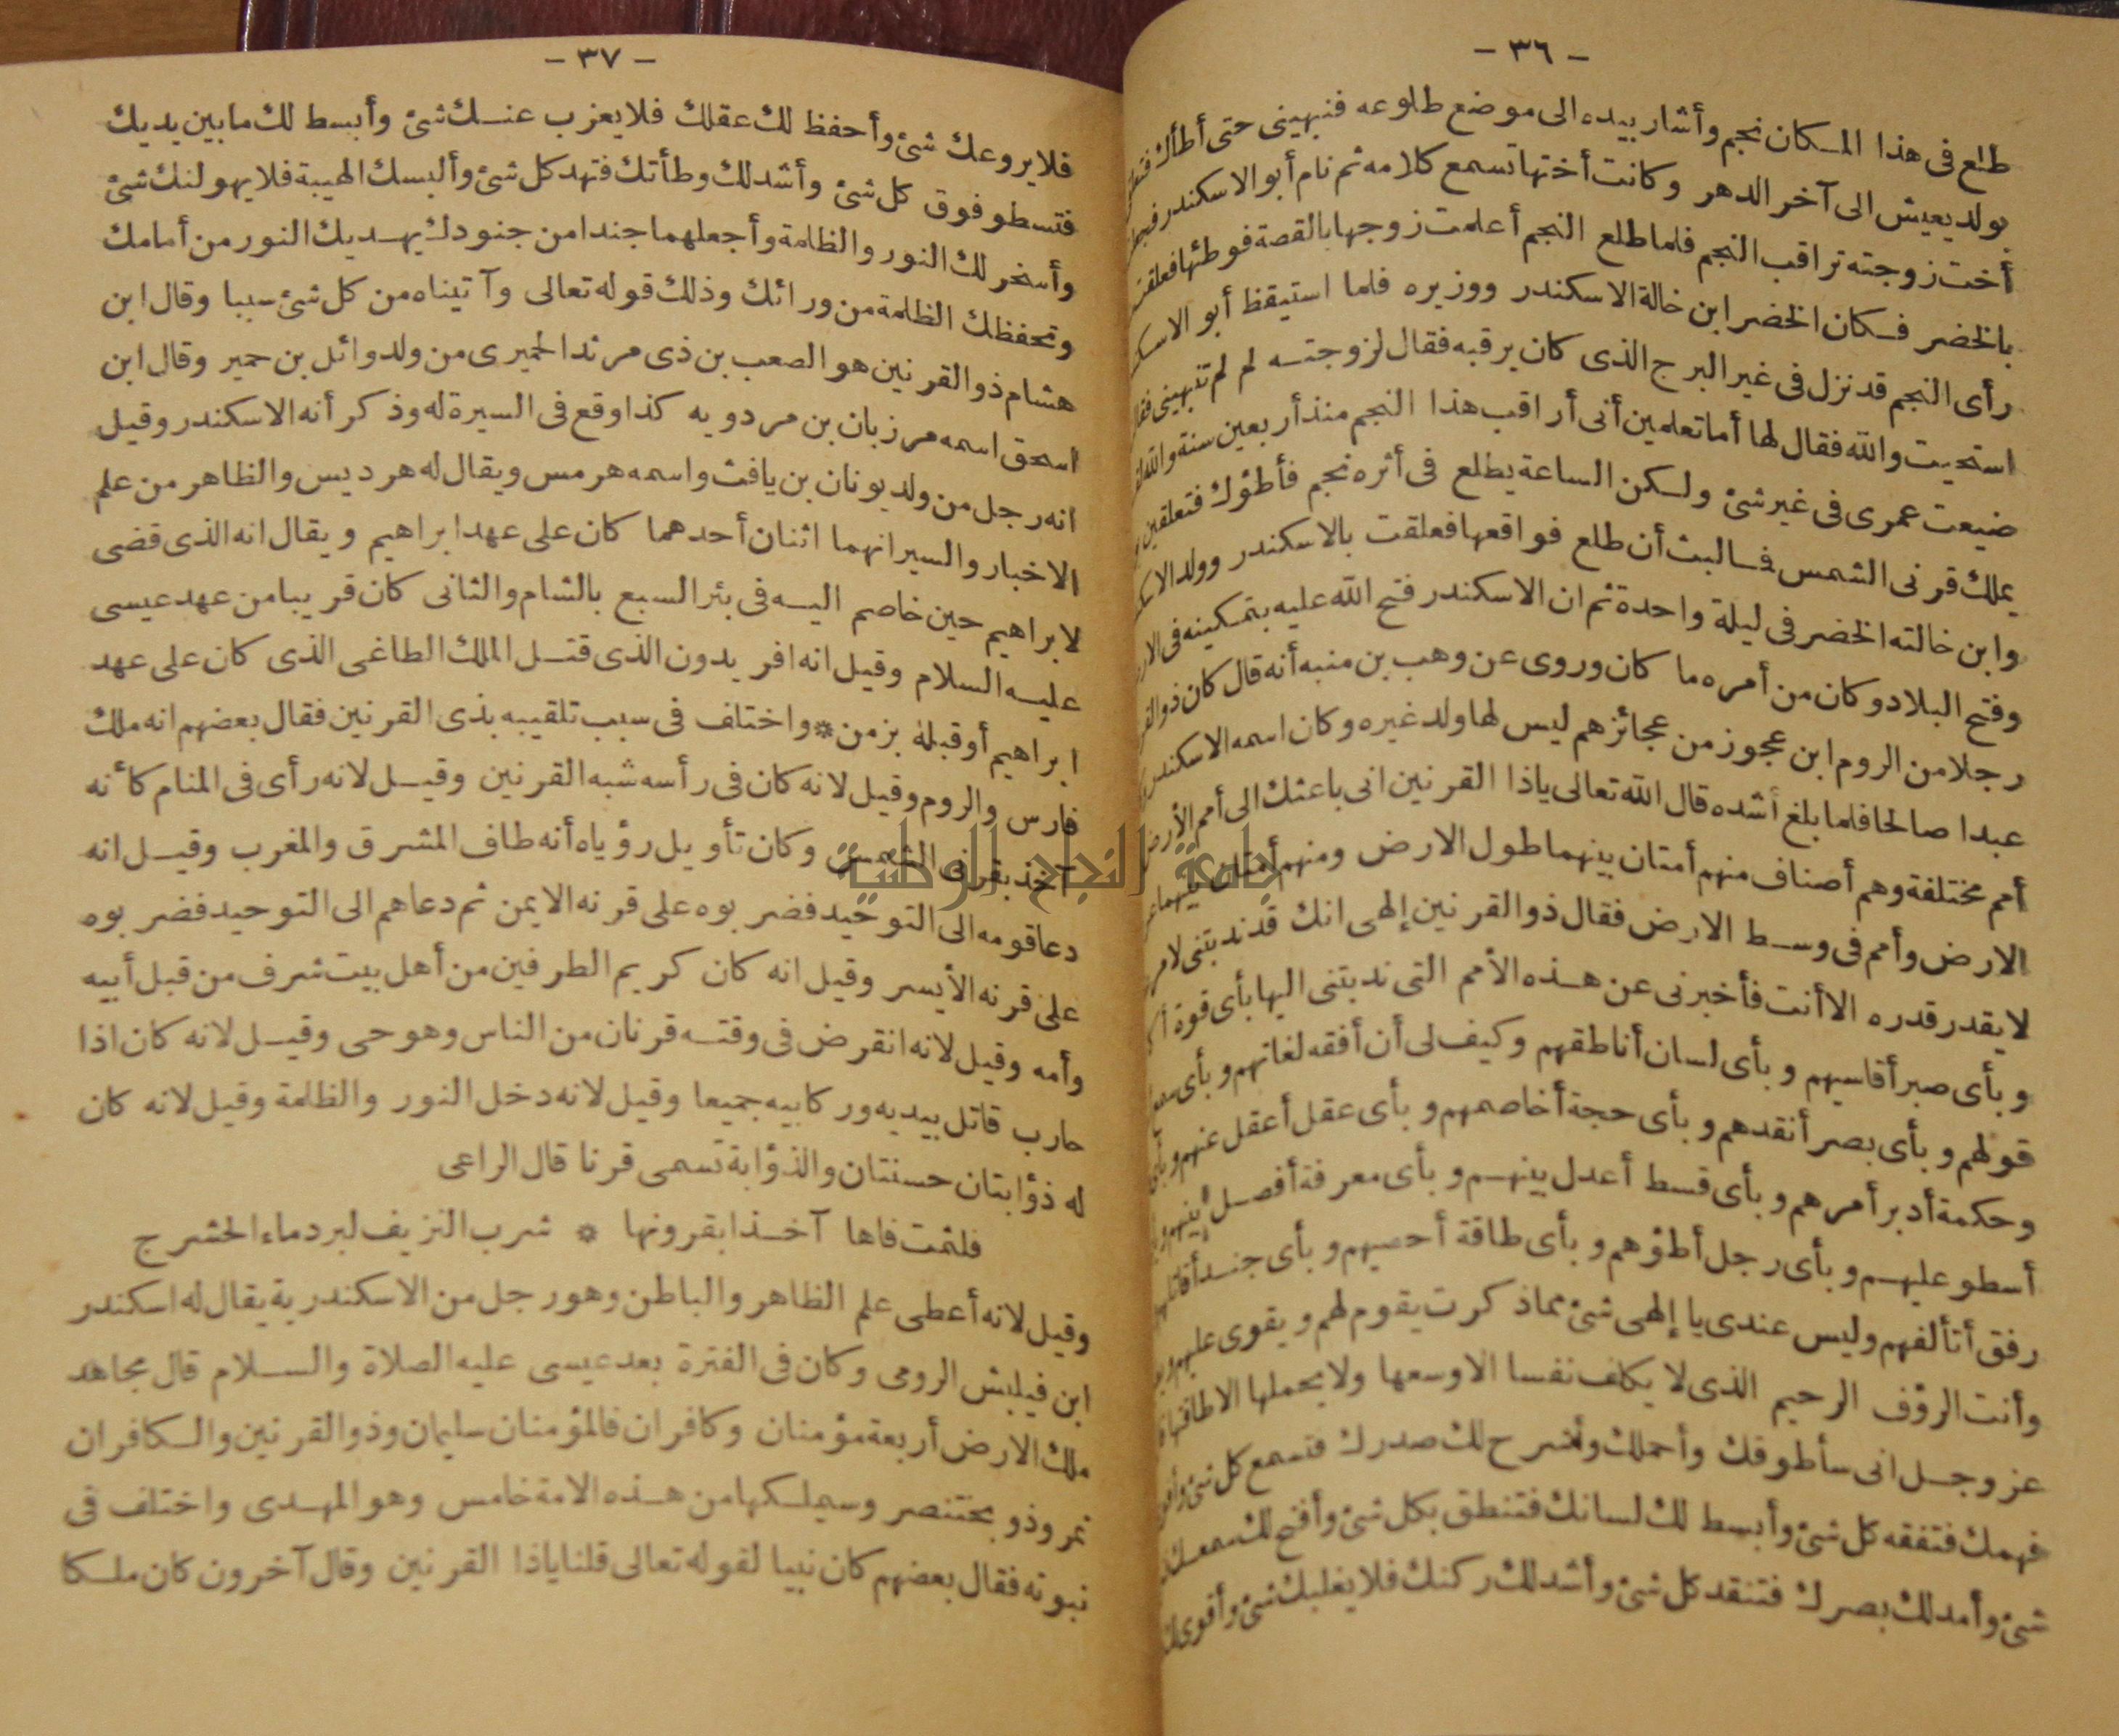 - ٣٦ -
طلع فى هذا المكان نجم وأشار بيده الى موضع طلوعه فنبهينى حتى أطأك
بولد يعيش الى آخر الدهر وكانت أختها تسمع كلامه ثم نام أبو الاسكندر
أخت زوجته تراقب النجم فلما طلع النجم أعلمت زوجها بالقصة فوطئها فعلقت
بالخضر فكان الخضر ابن خالة الاسكندر ووزيره فلما استيقظ أبو
رأى النجم قد نزل فى غير البرج الذى كان يرقبه فقال لزوجته لم لم تنبهينى
استحييت والله فقال لها أما تعلمين أنى أراقب هذا النجم منذ أربعين سنة والله
ضيعت عمرى فى غير شئ ولكن الساعة يطلع فى أثره نجم فأطؤك فتعلقين
يملك قرنى الشمس فما لبث أن طلع فواقعها فعلقت بالاسكندر وولد
وابن خالته الخضر فى ليلة واحدة ثم ان الاسكندر فتح الله عليه بتمكينه فى
وفتح البلاد وكان من أمره ما كان وروى عن وهب بن منبه أنه قال كان
رجلا من الروم ابن عجوز من عجائزهم ليس لها ولد غيره وكان اسمه الاسكندر
عبدا صالحا فلما بلغ أشده قال الله تعالى ياذا القرنين انى باعثك الى أمم الأرض
أمم مختلفة وهم أصناف منهم أمتان بينهما طول الارض ومنهم أمتان بينهما
الارض وأمم فى وسط الارض فقال ذوالقرنين إلهى انك قد ندبتنى لامر
لا يقدر قدره الا أنت فأخبرنى عن هذه الأمم التى ندبتنى اليها بأى قوة
وبأى صبر أقاسيهم وبأى لسان أناطقهم وكيف لى أن أفقه لغاتهم وبأى
قولهم وبأى بصر أنقدهم وبأى حجة أخاصمهم وبأى عقل أعقل عنهم
وحكمة أدبر أمرهم وبأى قسط أعدل بينهم وبأى معرفة أفصل بينهم
أسطو عليهم وبأى رجل أطؤهم وبأى طاقة أحصيهم وبأى جند
رفق أتألفهم وليس عندى يا إلهى شئ مما ذكرت يقوم لهم ويقوى عليهم
وأنت الرؤف الرحيم الذى لا يكلف نفسا الا وسعها ولا يحملها الا طاقتها
عز وجل انى سأطوقك وأحملك وأشرح لك صدرك فتسمع كل شئ
فهمك فتفقه كل شئ وأبسط لك لسانك فتنطق بكل شئ وأفتح لك سمعك
شئ وأمد لك بصرك فتنقد كل شئ وأشد لك ركنك فلا يغلبك شئ وأقوى
- ٣٧ -
فلا يروعك شئ وأحفظ لك عقلك فلا يعزب عنك شئ وأبسط لك ما بين يديك
فتسطو فوق كل شئ وأشد لك وطأتك فتهد كل شئ وألبسك الهيبة فلا يهولنك شئ
وأسخر لك النور والظلمة وأجعلهما جندا من جنودك يهديك النور من أمامك
وتحفظك الظلمة من ورائك وذلك قوله تعالى وآتيناه من كل شئ سببا وقال ابن
هشام ذوالقرنين هو الصعب بن ذى مرثد الحميرى من ولد وائل بن حمير وقال ابن
اسحق اسمه مرزبان بن مردويه كذا وقع فى السيرة له وذكر أنه الاسكندر وقيل
انه رجل من ولد يونان بن يافث واسمه هرمس ويقال له هرديس والظاهر من علم
الاخبار والسير انهما اثنان أحدهما كان على عهد ابراهيم ويقال انه الذى قضى
لابراهيم حين خاصم اليه فى بئر السبع بالشام والثانى كان قريبا من عهد عيسى
عليه السلام وقيل انه افريدون الذى قتل الملك الطاغى الذى كان على عهد
ابراهيم أو قبله بزمن * واختلف فى سبب تلقيبه بذى القرنين فقال بعضهم انه ملك
فارس والروم وقيل لانه كان فى رأسه شبه القرنين وقيل لانه رأى فى المنام كأنه
آخذ بقرنى الشمس وكان تأويل رؤياه أنه طاف المشرق والمغرب وقيل انه
دعا قومه الى التوحيد فضربوه على قرنه الايمن ثم دعاهم الى التوحيد فضربوه
على قرنه الأيسر وقيل انه كان كريم الطرفين من أهل بيت شرف من قبل أبيه
وأمه وقيل لانه انقرض فى وقته قرنان من الناس وهو حى وقيل لانه كان اذا
حارب قاتل بيديه وركابيه جميعا وقيل لانه دخل النور والظلمة وقيل لانه كان
له ذؤابتان حسنتان والذؤابة تسمى قرنا قال الراعى
فلثمت فاها آخذا بقرونها * شرب النزيف لبرد ماء الحشرج
وقيل لانه أعطى علم الظاهر والباطن وهو رجل من الاسكندرية يقال له اسكندر
ابن فيلبش الرومى وكان فى الفترة بعد عيسى عليه الصلاة والسلام قال مجاهد
ملك الارض أربعة مؤمنان وكافران فالمؤمنان سليمان وذوالقرنين والكافران
نمروذ وبختنصر وسيملكها من هذه الامة خامس وهو المهدى واختلف فى
نبوته فقال بعضهم كان نبيا لقوله تعالى قلنا ياذا القرنين وقال آخرون كان ملكا
جامعة النجاح الوطنية